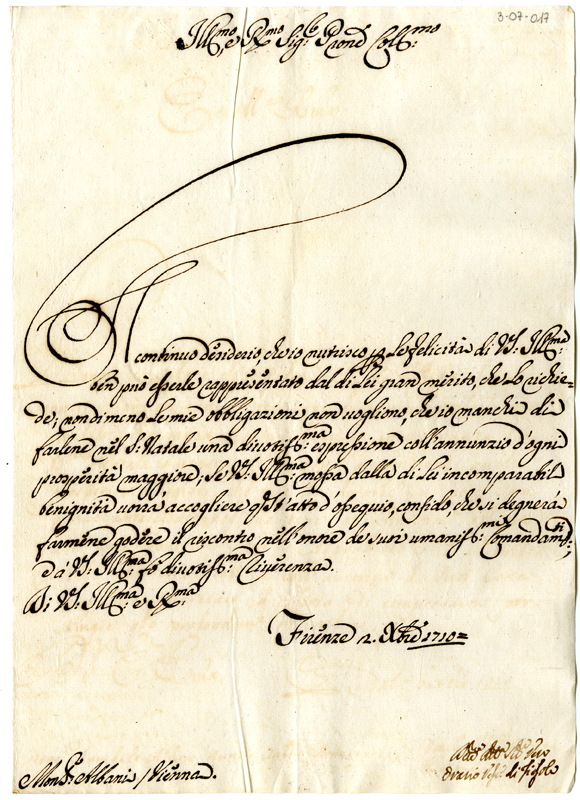 3-07-017
Ill:mo, e R:mo Sig:r Pron Col:mo
Il continuo desiderio, che io nutrisco p le felicità di VS: Ill:ma
ben può esserle rappresentato dal di Lei gran merito, che lo richie=
de; nondimeno le mie obbligazioni non vogliono, che io manchi di
farlene nel S: Natale una divotiss:ma espressione coll'annunzio d'ogni
prosperità maggiore; Se VS: Ill:ma mossa dalla di Lei incomparabil
benignità vorrà accogliere qst'atto d'ossequio, confido, che si degnerà
farmene godere il riscontro nell'onore de suoi umaniss:mi Comandam:ti;
ed à VS: Ill:ma fò divotiss:ma Riverenza.
Di VS: Ill:ma, e R:ma
Firenze 2. Xbre 1710=
Mons:r Albani / Vienna.
Orazio di Fiesole